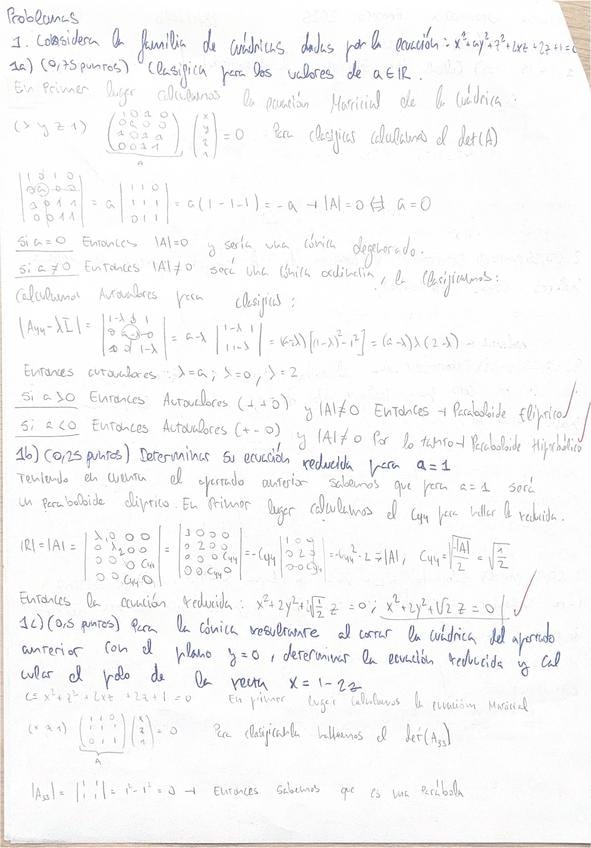 Problemas
1. Considera la familia de cuádricas dadas por la ecuación: x²+ay²+z²+2xz+2z+1=0
1a) (0,75 puntos) Clasifica para los valores de a∈ℝ.
En primer lugar calculamos la ecuación Matricial de la Cuádrica:
(x y z 1) (1 0 1 0 / 0 a 0 0 / 1 0 1 1 / 0 0 1 1) (x y z 1) = 0 Para clasificar calculamos el det(A)
A
|1 0 1 0 / 0 a 0 0 / 1 0 1 1 / 0 0 1 1| = a |1 1 0 / 1 1 1 / 0 1 1| = a(1-1-1) = -a → |A|=0 ⇔ a=0
Si a=0 Entonces |A|=0 y sería una cónica degenerado.
Si a≠0 Entonces |A|≠0 será una cónica ordinaria, la clasificamos:
Calculamos Autovalores para clasificar:
|A44-λI| = |1-λ 0 1 / 0 a-λ 0 / 1 0 1-λ| = a-λ |1-λ 1 / 1 1-λ| = (a-λ)[(1-λ)²-1²] = (a-λ)λ(2-λ)
Entonces autovalores: λ=a; λ=0; λ=2
Si a>0 Entonces Autovalores (++0) y |A|≠0 Entonces → Paraboloide Elíptico
Si a<0 Entonces Autovalores (+-0) y |A|≠0 Por lo tanto → Paraboloide Hiperbólico
1b) (0,25 puntos) Determinar su ecuación reducida para a=1
Teniendo en cuenta el apartado anterior sabemos que para a=1 será
un paraboloide elíptico. En Primer lugar calculamos el C44 para hallar la reducida.
|R|=|A|= |λ1 0 0 0 / 0 λ2 0 0 / 0 0 0 C44 / 0 0 C44 0| = |1 0 0 0 / 0 2 0 0 / 0 0 0 C44 / 0 0 C44 0| = -C44 |1 0 0 / 0 2 0 / 0 0 C44| = -C44²·2=|A|, C44=√(-|A|/2) = √(1/2)
Entonces la ecuación reducida: x²+2y²+√(1/2) z =0; x²+2y²+√2 z=0
1c) (0,5 puntos) Para la cónica resultante al cortar la cuádrica del apartado
anterior con el plano y=0, determinar la ecuación reducida y cal
cular el polo de la recta x=1-2z
C≡x²+z²+2xz+2z+1=0 En primer lugar calculamos la ecuación Matricial
(x z 1) (1 1 0 / 1 1 1 / 0 1 1) (x z 1) = 0 Para clasificarla hallamos el det(A33)
A
|A33| = |1 1 / 1 1| = 1²-1² = 0 → Entonces sabemos que es una Parábola